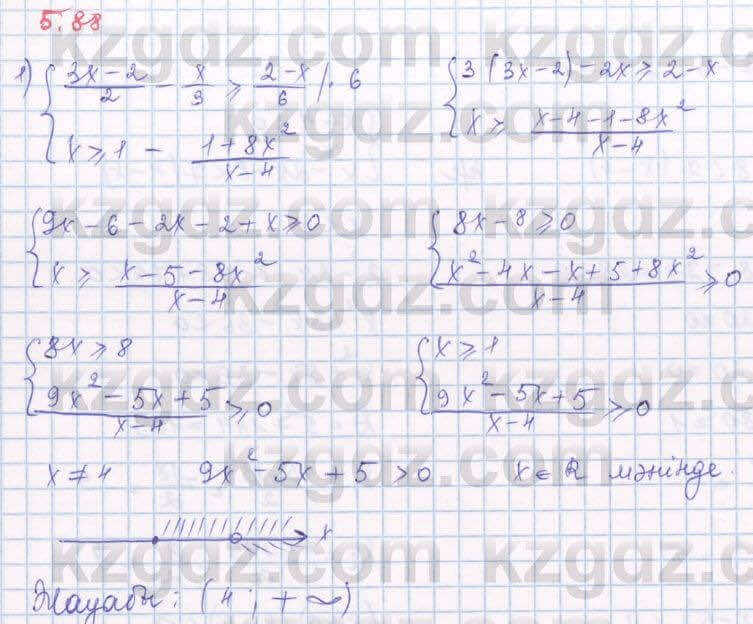 5.88
1) { (3x-2)/2 - x/3 ≥ (2-x)/6 /· 6    { 3(3x-2)-2x ≥ 2-x
x ≥ 1 - (1+8x²)/(x-4)    x ≥ (x-4-1-8x²)/(x-4)
{ 9x-6-2x-2+x ≥ 0    { 8x-8 ≥ 0
x ≥ (x-5-8x²)/(x-4)    (x²-4x-x+5+8x²)/(x-4) ≥ 0
{ 8x ≥ 8    { x ≥ 1
(9x²-5x+5)/(x-4) ≥ 0    (9x²-5x+5)/(x-4) ≥ 0
x ≠ 4    9x²-5x+5 > 0    x ∈ R мәнінде.
x
Жауабы: (4; +∞)
kzgdz.com